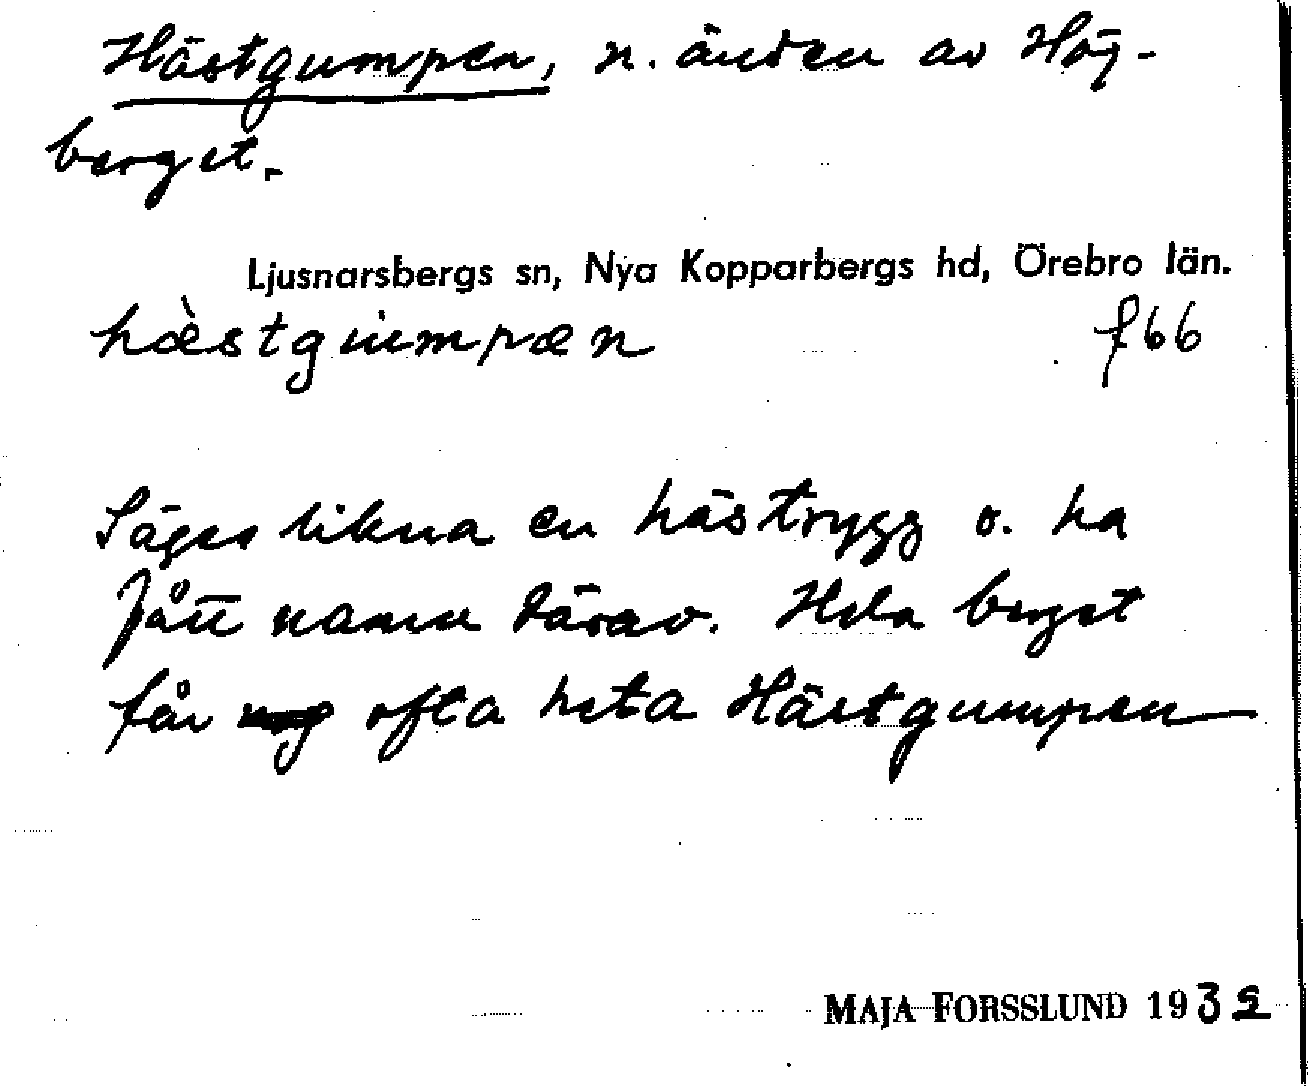 Hästgumpen, n. änden av Hög-
berget.
Ljusnarsbergs sn, Nya Kopparbergs hd, Örebro län.
hæ̀stgumpæn f66
Säges likna en hästrygg o. ha
fått namn därav. Hela berget
får ofta heta Hästgumpen
MAJA FORSSLUND 193